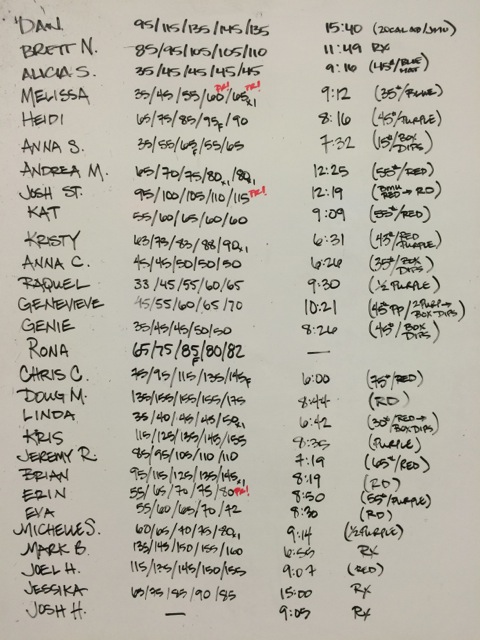 DAN 95/115/135/145/135 15:40
BRETT N. 85/95/105/105/110 11:49 RX
ALICIA S. 35/45/45/45/45 9:16 (45#/BLUE MAT)
MELISSA 35/45/55/60 PR!/65x1 PR! 9:12 (35#/BLUE)
HEIDI 65/75/85/95F/90 8:16 (45#/PURPLE)
ANNA S. 35/55/65F/55/65 7:32 (15#/BOX DIPS)
ANDREA M. 65/70/75/80x1/80x1 12:25 (55#/RED)
JOSH ST. 95/100/105/110/115 PR! 12:19 (RED → RD)
KAT 55/60/65/60/60 9:09 (55#/RED)
KRISTY 63/73/83/88/90x1 6:31 (43#/RED PURPLE)
ANNA C. 45/45/50/50/50 6:26 (35#/BOX DIPS)
RAQUEL 33/45/55/60/65 9:30 (½ PURPLE)
GENEVIEVE 45/55/60/65/70 10:21 (45#PP/2PURP→ BOX DIPS)
GENIE 35/45/45/50/50 8:26 (45#/BOX DIPS)
RONA 65/75/85F/80/82 —
CHRIS C. 75/95/115/135/145F 6:00 (75#/RED)
DOUG M. 135/155/155/155/175 8:44 (RD)
LINDA 35/40/45/45/50x1 6:42 (30#/RED→ BOX DIPS)
KRIS 115/125/135/145/155 8:35 (PURPLE)
JEREMY R. 85/95/105/110/110 7:19 (65#/RED)
BRIAN 95/115/125/135/145x1 8:19 (RD)
ERIN 55/65/70/75/80 PR! 8:50 (55#/PURPLE)
EVA 55/60/65/70/72 8:30 (RD)
MICHELLE S. 60/65/70/75/80x1 9:14 (½ PURPLE)
MARK B. 135/145/150/155/160 6:55 RX
JOEL H. 115/135/145/150/155 9:07 (RED)
JESSIKA 63/75/85/90/85 15:00 RX
JOSH H. — 9:05 RX